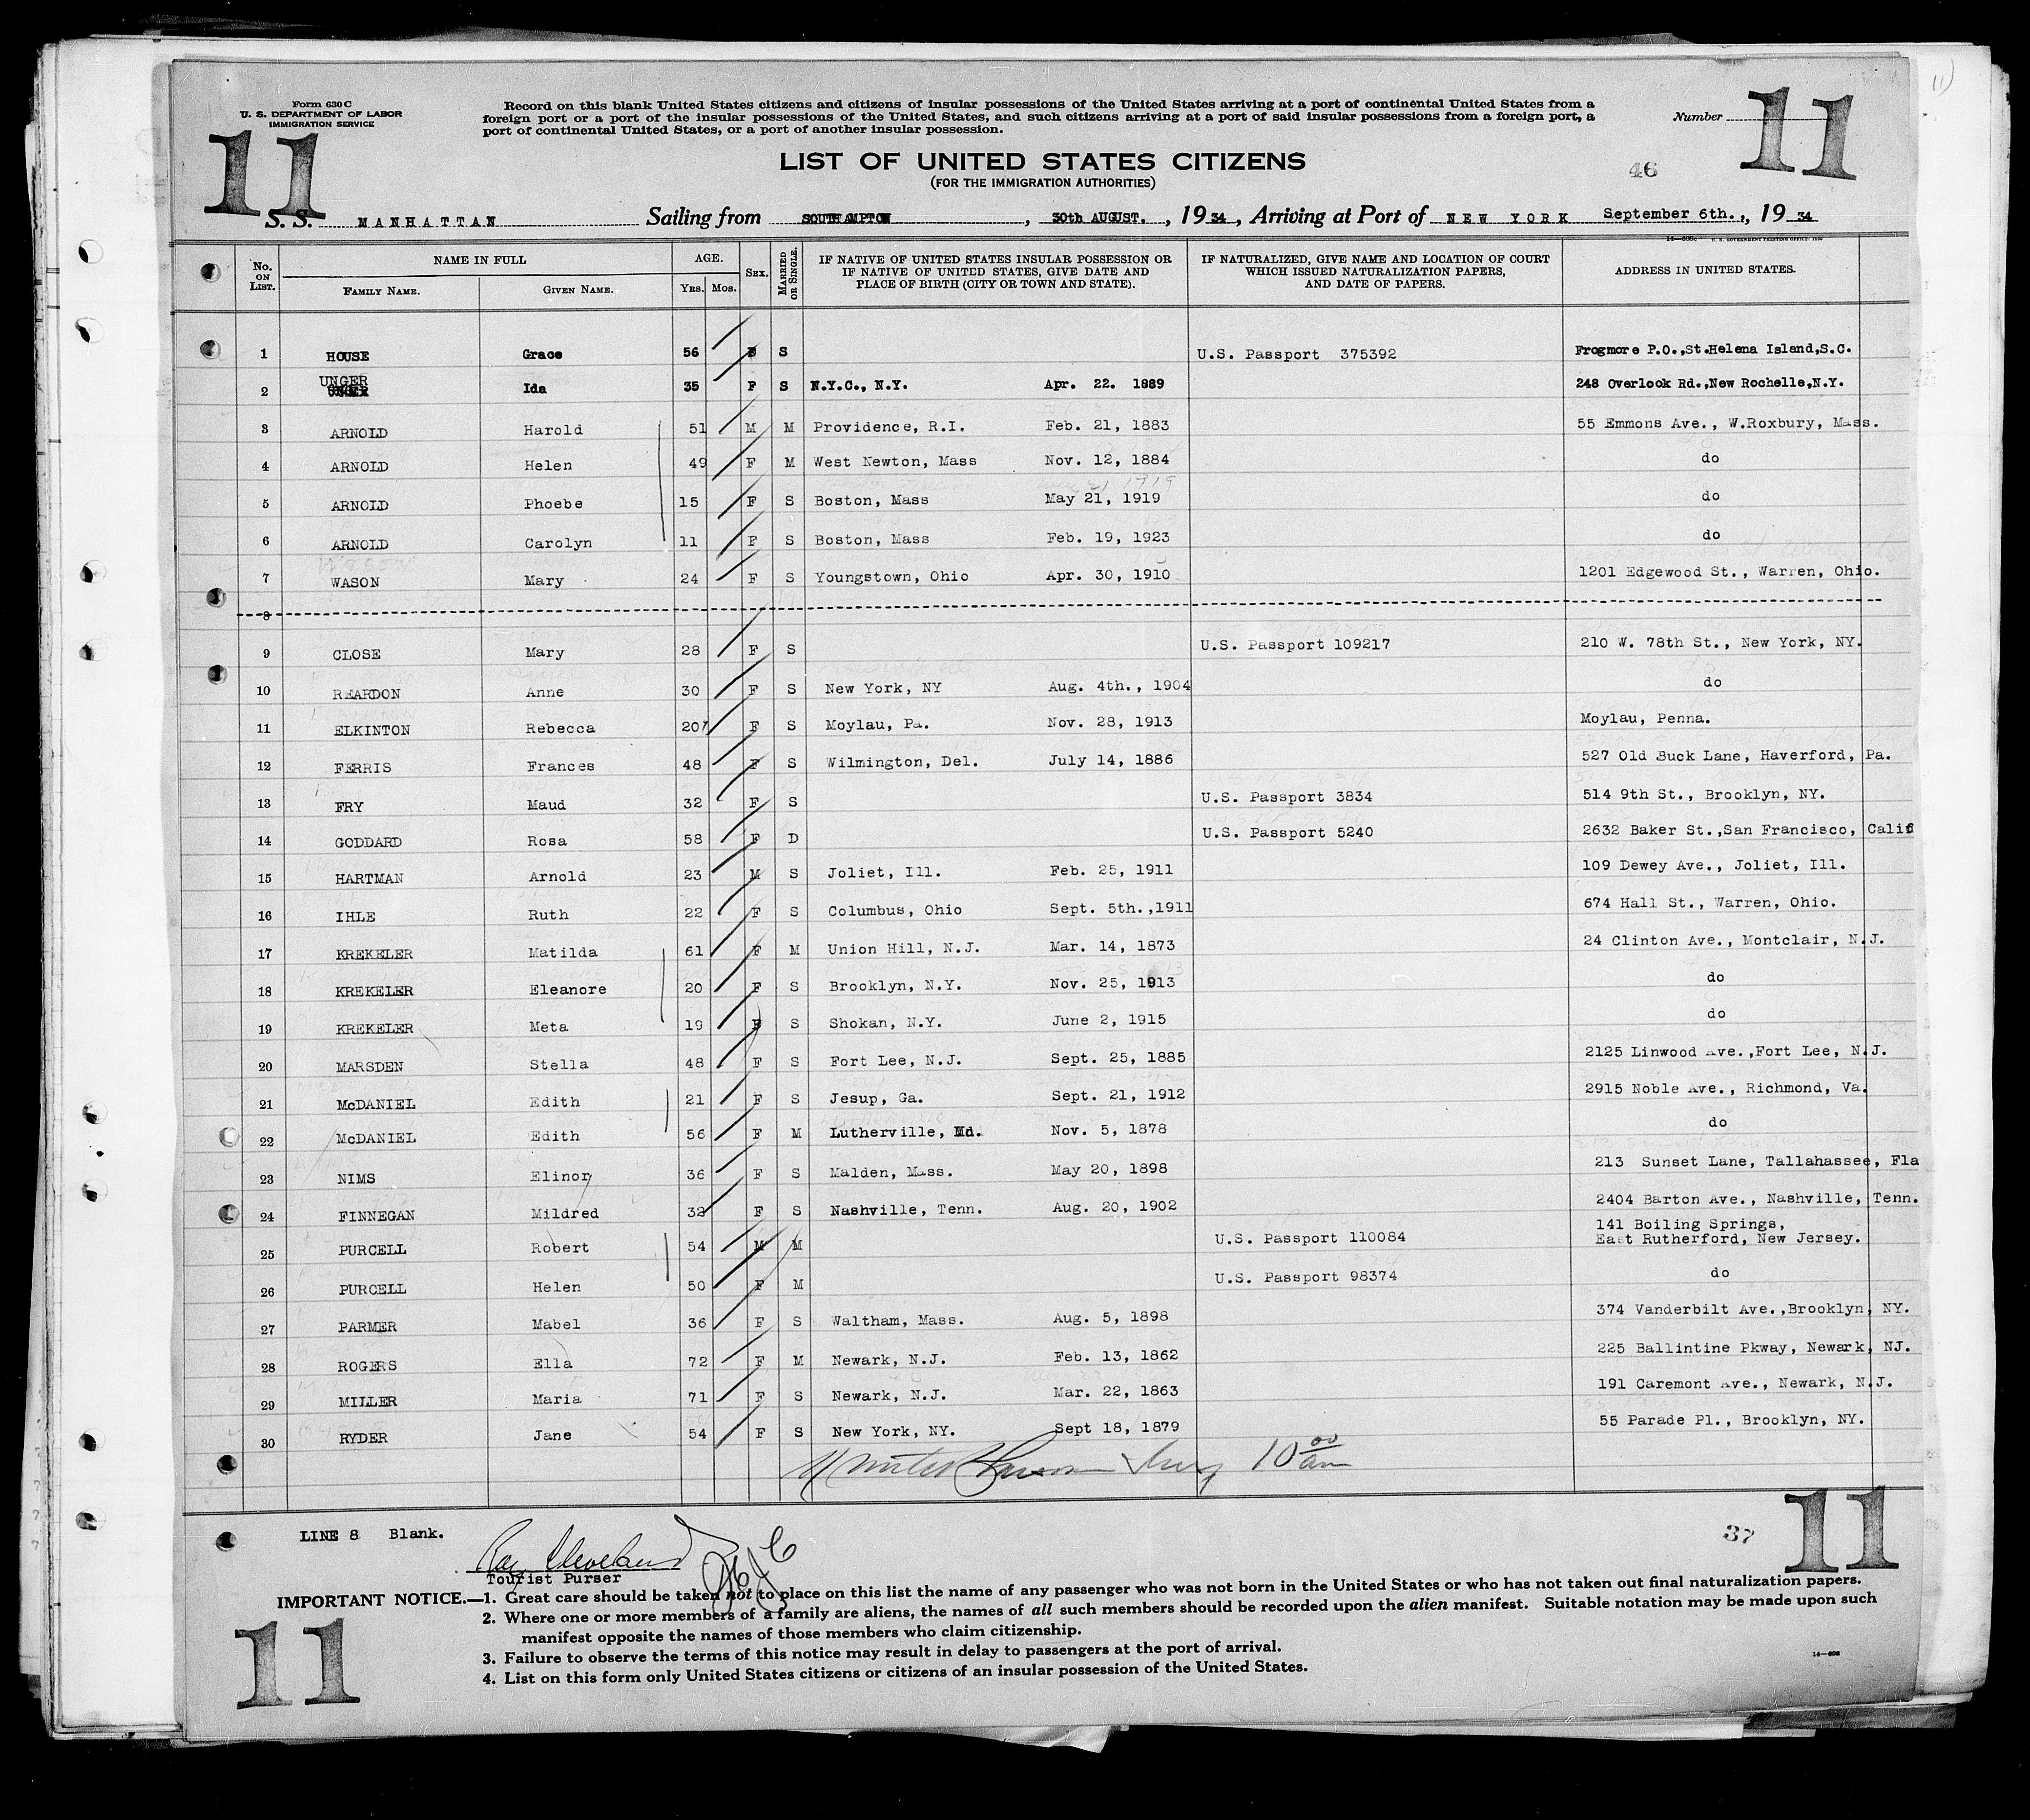 Form 630 C
U. S. DEPARTMENT OF LABOR
IMMIGRATION SERVICE
Record on this blank United States citizens and citizens of insular possessions of the United States arriving at a port of continental United States from a
foreign port or a port of the insular possessions of the United States, and such citizens arriving at a port of said insular possessions from a foreign port, a
port of continental United States, or a port of another insular possession.
Number
11
11
11)
LIST OF UNITED STATES CITIZENS
(FOR THE IMMIGRATION AUTHORITIES)
46
S. S. MANHATTAN Sailing from SOUTHAMPTON, 30th AUGUST., 1934, Arriving at Port of NEW YORK September 6th., 1934
No. ON LIST. NAME IN FULL FAMILY NAME. GIVEN NAME. AGE. YRS. MOS. SEX. MARRIED OR SINGLE. IF NATIVE OF UNITED STATES INSULAR POSSESSION OR IF NATIVE OF UNITED STATES, GIVE DATE AND PLACE OF BIRTH (CITY OR TOWN AND STATE). IF NATURALIZED, GIVE NAME AND LOCATION OF COURT WHICH ISSUED NATURALIZATION PAPERS, AND DATE OF PAPERS. ADDRESS IN UNITED STATES.
1 HOUSE Grace 56 S U.S. Passport 375392 Frogmore P.O.,St.Helena Island,S.C.
2 UNGER Ida 35 F S N.Y.C., N.Y. Apr. 22. 1889 248 Overlook Rd.,New Rochelle,N.Y.
3 ARNOLD Harold 51 M M Providence, R.I. Feb. 21, 1883 55 Emmons Ave., W.Roxbury, Mass.
4 ARNOLD Helen 49 F M West Newton, Mass Nov. 12, 1884 do
5 ARNOLD Phoebe 15 F S Boston, Mass May 21, 1919 do
6 ARNOLD Carolyn 11 F S Boston, Mass Feb. 19, 1923 do
7 WASON Mary 24 F S Youngstown, Ohio Apr. 30, 1910 1201 Edgewood St., Warren, Ohio.
8
9 CLOSE Mary 28 F S U.S. Passport 109217 210 W. 78th St., New York, NY.
10 REARDON Anne 30 F S New York, NY Aug. 4th., 1904 do
11 ELKINTON Rebecca 20 F S Moylau, Pa. Nov. 28, 1913 Moylau, Penna.
12 FERRIS Frances 48 F S Wilmington, Del. July 14, 1886 527 Old Buck Lane, Haverford, Pa.
13 FRY Maud 32 F S U.S. Passport 3834 514 9th St., Brooklyn, NY.
14 GODDARD Rosa 58 F D U.S. Passport 5240 2632 Baker St.,San Francisco, Calif
15 HARTMAN Arnold 23 M S Joliet, Ill. Feb. 25, 1911 109 Dewey Ave., Joliet, Ill.
16 IHLE Ruth 22 F S Columbus, Ohio Sept. 5th.,1911 674 Hall St., Warren, Ohio.
17 KREKELER Matilda 61 F M Union Hill, N.J. Mar. 14, 1873 24 Clinton Ave., Montclair, N.J.
18 KREKELER Eleanore 20 F S Brooklyn, N.Y. Nov. 25, 1913 do
19 KREKELER Meta 19 F S Shokan, N.Y. June 2, 1915 do
20 MARSDEN Stella 48 F S Fort Lee, N.J. Sept. 25, 1885 2125 Linwood Ave.,Fort Lee, N.J.
21 McDANIEL Edith 21 F S Jesup, Ga. Sept. 21, 1912 2915 Noble Ave., Richmond, Va.
22 McDANIEL Edith 56 F M Lutherville, Md. Nov. 5, 1878 do
23 NIMS Elinor 36 F S Malden, Mass. May 20, 1898 213 Sunset Lane, Tallahassee, Fla
24 FINNEGAN Mildred 32 F S Nashville, Tenn. Aug. 20, 1902 2404 Barton Ave., Nashville, Tenn.
25 PURCELL Robert 54 M M U.S. Passport 110084 141 Boiling Springs, East Rutherford, New Jersey.
26 PURCELL Helen 50 F M U.S. Passport 98374 do
27 PARMER Mabel 36 F S Waltham, Mass. Aug. 5, 1898 374 Vanderbilt Ave.,Brooklyn, NY.
28 ROGERS Ella 72 F M Newark, N.J. Feb. 13, 1862 225 Ballintine Pkway, Newark, NJ.
29 MILLER Maria 71 F S Newark, N.J. Mar. 22, 1863 191 Caremont Ave., Newark, N.J.
30 RYDER Jane 54 F S New York, NY. Sept 18, 1879 55 Parade Pl., Brooklyn, NY.
10 00 am
LINE 8 Blank.
Ray Cleveland
Tourist Purser
37
11
IMPORTANT NOTICE.—1. Great care should be taken not to place on this list the name of any passenger who was not born in the United States or who has not taken out final naturalization papers.
2. Where one or more members of a family are aliens, the names of all such members should be recorded upon the alien manifest. Suitable notation may be made upon such
manifest opposite the names of those members who claim citizenship.
3. Failure to observe the terms of this notice may result in delay to passengers at the port of arrival.
4. List on this form only United States citizens or citizens of an insular possession of the United States.
11
14—608